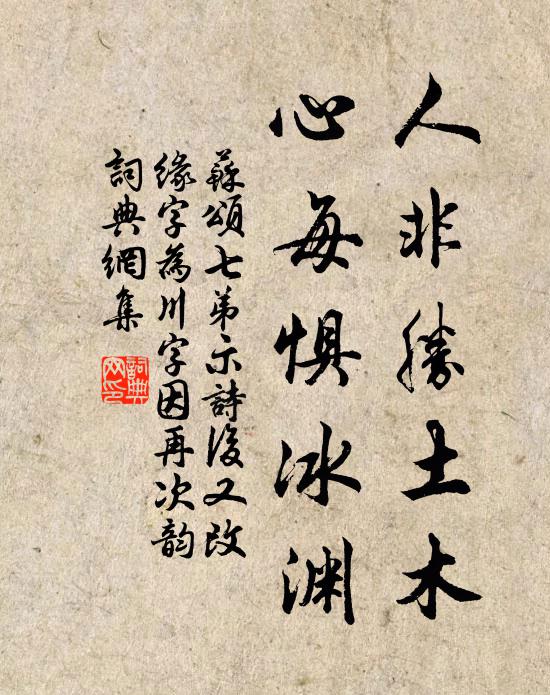 人非勝土木
心每惧冰渊
蘇頌七弟示詩後又改
緣字為川字因再次韵
詞典網集
詞典
网印